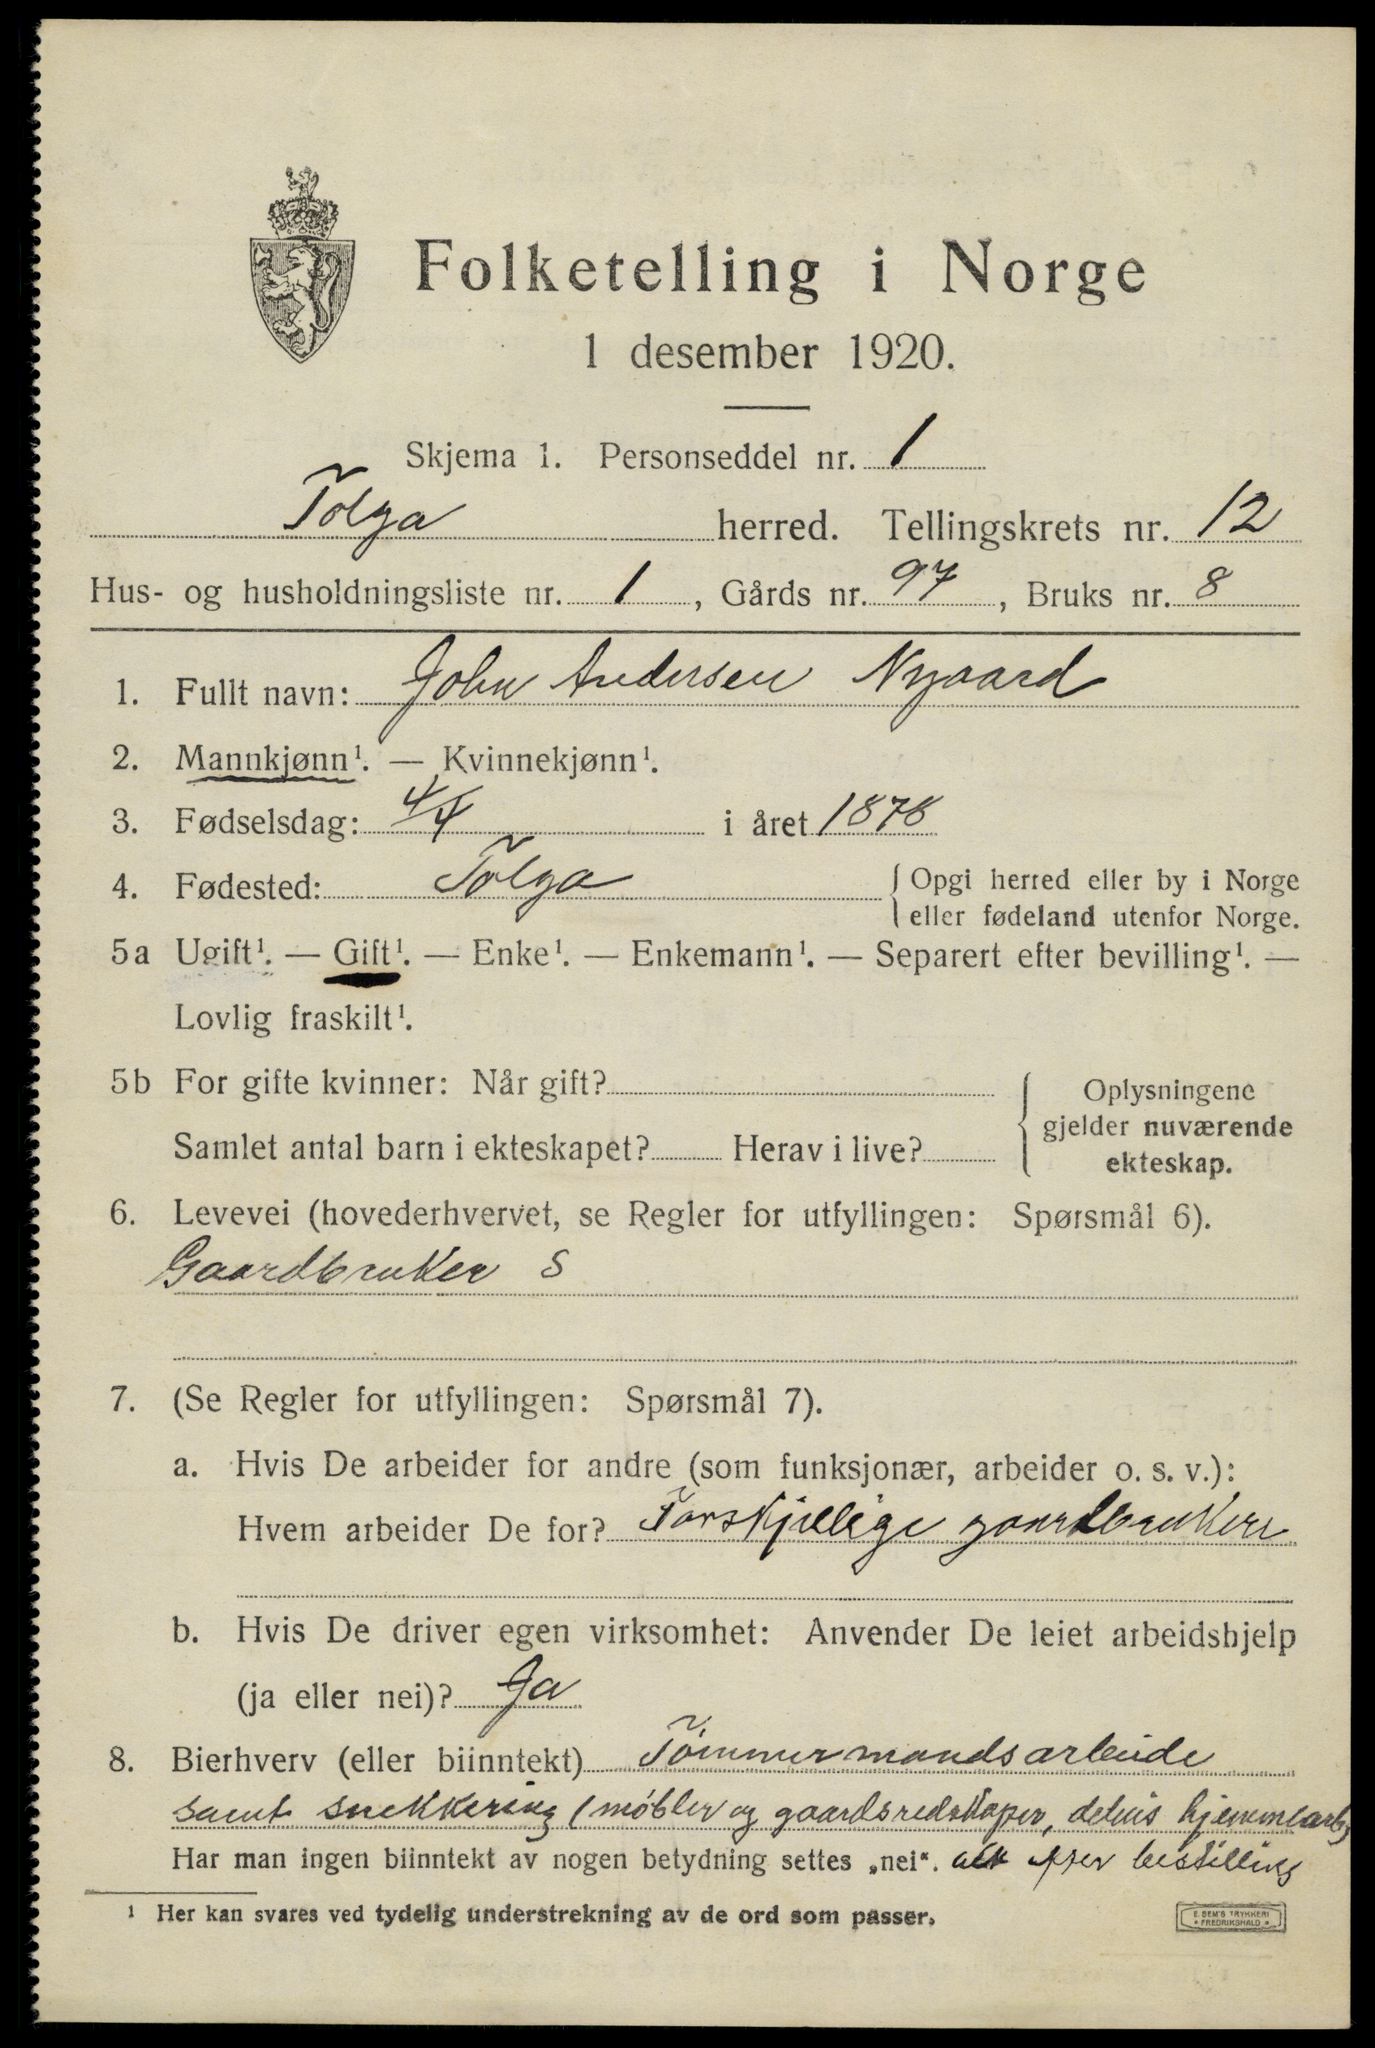 Folketelling i Norge
1 desember 1920.
Skjema 1. Personseddel nr. 1
Tolga herred. Tellingskrets nr. 12
Hus- og husholdningsliste nr. 1, Gårds nr. 97, Bruks nr. 8
1. Fullt navn: John Andersen Nygaard
2. Mannkjønn¹. — Kvinnekjønn¹.
3. Fødselsdag: 4/4 i året 1878
4. Fødested: Tolga { Opgi herred eller by i Norge
eller fødeland utenfor Norge.
5a Ugift¹. — Gift¹. — Enke¹. — Enkemann¹. — Separert efter bevilling¹. —
Lovlig fraskilt¹.
5b For gifte kvinner: Når gift? { Oplysningene
gjelder nuværende
Samlet antal barn i ekteskapet? Herav i live? ekteskap.
6. Levevei (hovederhvervet, se Regler for utfyllingen: Spørsmål 6).
Gaardbruker S
7. (Se Regler for utfyllingen: Spørsmål 7).
a. Hvis De arbeider for andre (som funksjonær, arbeider o. s. v.):
Hvem arbeider De for? Forskjellige gaardbrukere
b. Hvis De driver egen virksomhet: Anvender De leiet arbeidshjelp
(ja eller nei)? Ja
8. Bierhverv (eller biinntekt) Tömmermandsarbeide
samt snekkering (møbler og gaardsredskaper, delvis hjemmearb)
Har man ingen biinntekt av nogen betydning settes „nei“. alt efter bestilling
¹ Her kan svares ved tydelig understrekning av de ord som passer.
E. SEM'S TRYKKERI
* FREDRIKSHALD *